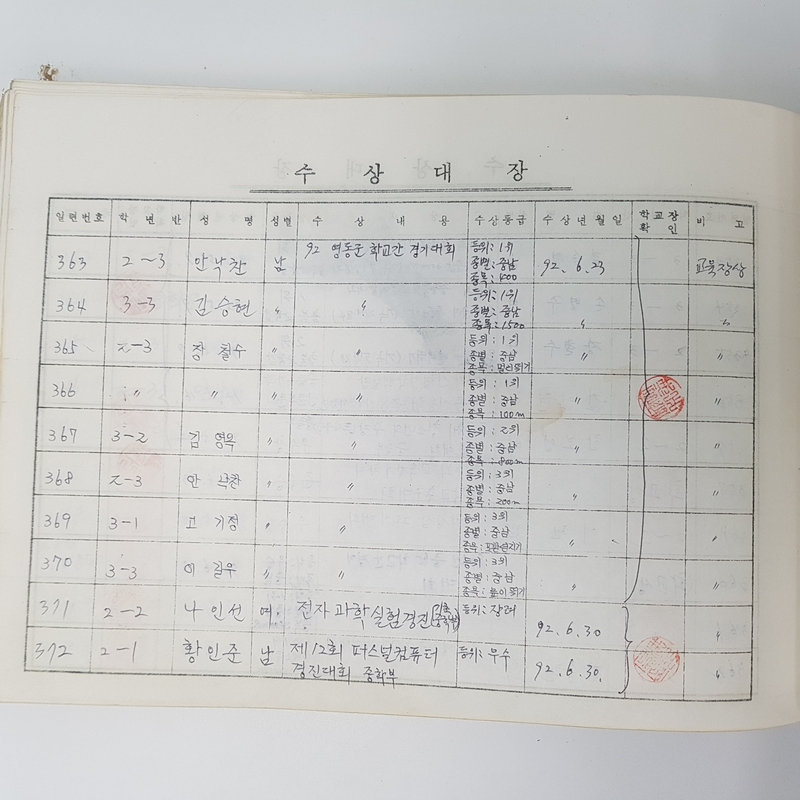 수 상 대 장
일련번호 학 년 반 성 명 성별 수 상 내 용 수상등급 수상년월일 학교장 확 인 비 고
363 2-3 안낙찬 남 92 영동군 학교간 경기대회 등위: 1위 92. 6. 23 교육장상
종별: 중남
종목: 400
364 3-3 김승현 〃 〃 등위: 1위 〃 〃
종별: 중남
종목: 1500
365 2-3 장철수 〃 〃 등위: 1위 〃 〃
종별: 중남
종목: 멀리뛰기
366 〃 〃 〃 〃 등위: 1위 〃 〃
종별: 중남
종목: 100m
367 3-2 김영옥 〃 〃 등위: 2위 〃 〃
종별: 중남
종목: 800m
368 2-3 안낙찬 〃 〃 등위: 3위 〃 〃
종별: 중남
종목: 200m
369 3-1 고기정 〃 〃 등위: 3위 〃 〃
종별: 중남
종목: 포환던지기
370 3-3 이길우 〃 〃 등위: 3위 〃 〃
종별: 중남
종목: 높이뛰기
371 2-2 나인선 여 전자과학실험경진 등위: 장려 92. 6. 30 〃
372 2-1 황인준 남 제12회 퍼스널컴퓨터 등위: 우수 92. 6. 30. 〃
경진대회 중학부